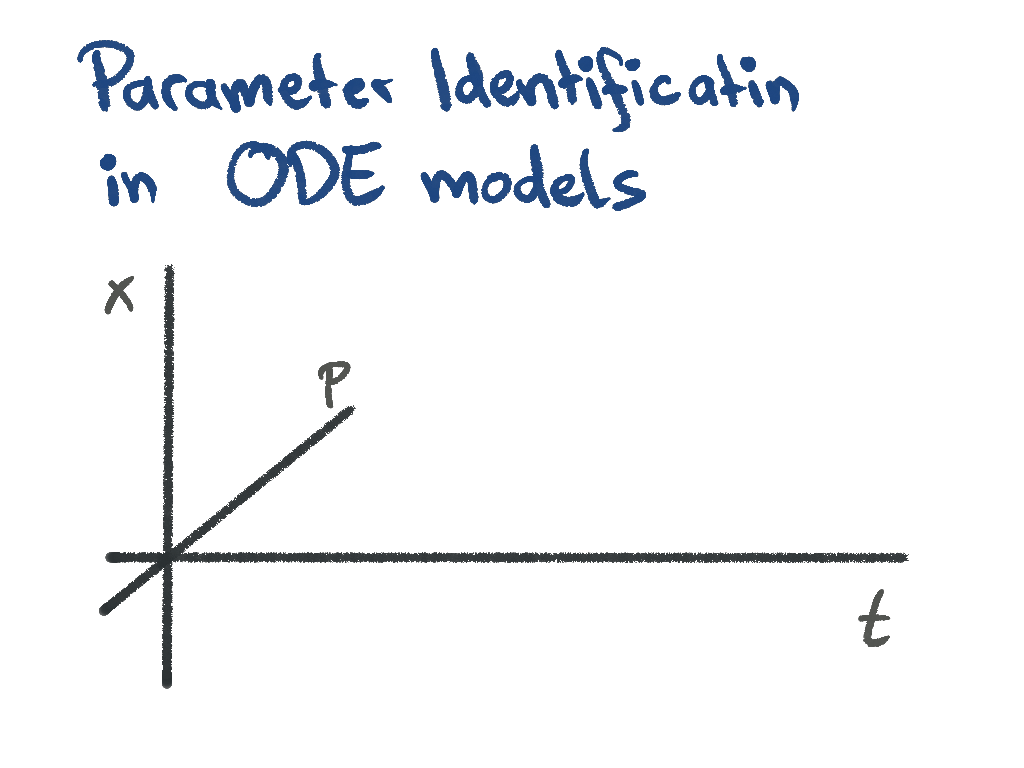 Parameter Identificatin
in ODE models
x
P
t